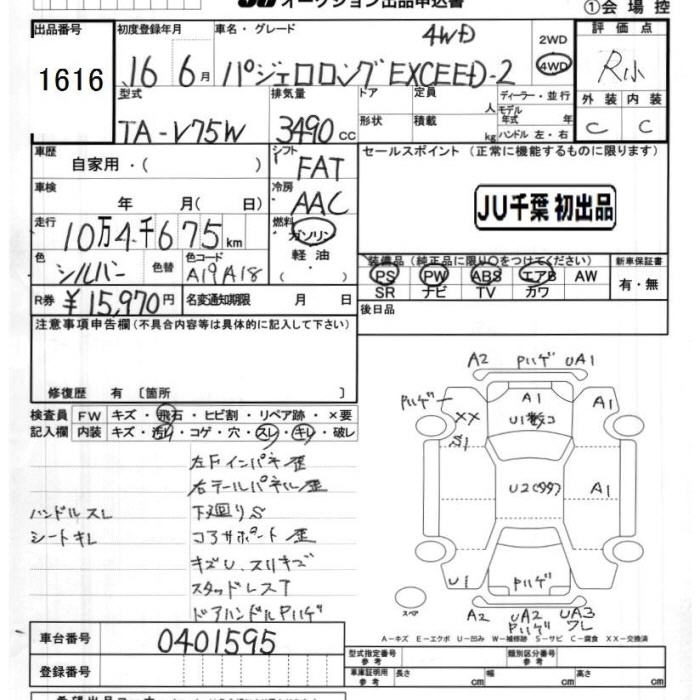 オークション出品申込書
①会場控
出品番号
1616
初度登録年月
16 6月
車名・グレード
4WD
パジェロロング EXCEED-2
2WD
4WD
評価点
R小
外装 内装
C C
型式
TA-V75W
排気量
3490 CC
ドア
形状
定員
人
積載
kg
ディーラー・並行
モデル
年式 年
ハンドル 左・右
車歴
自家用・( )
シフト
FAT
セールスポイント (正常に機能するものに限ります)
JU千葉 初出品
車検
年 月( 日)
冷房
AAC
走行
10万4千675km
燃料
ガソリン
軽油
( ・ )
色
シルバー
色替
色コード
A19A18
装備品(純正品に限り○をつけてください)
PS PW ABS エアB AW
SR ナビ TV カワ
新車保証書
有・無
R券 ¥15,970円
名変通知期限 月 日
後日品
注意事項申告欄(不具合内容等は具体的に記入して下さい)
修復歴 有 〔箇所 〕
検査員
記入欄
FW キズ・飛石・ヒビ割・リペア跡・×要
内装 キズ・汚レ・コゲ・穴・スレ・キレ・破レ
左Fインパネ歪
右テールパネル歪
ハンドルスレ
下廻りS
シートキレ
コアサポート歪
キズU、スリキズ
スタッドレスT
ドアハンドルPハゲ
A2 Pハゲ UA1
Pハゲ
A1
XX
S1
A1
U2(99)
A1
U1
Pハゲ
スペア
A2
UA2
Pハゲ
UA3
ワレ
A-キズ E-エクボ U-凹み W-補修跡 S-サビ C-腐食 XX-交換済
車台番号
0401595
登録番号
型式指定番号
参考
類別区分番号
参考
車庫証明用
参考
長さ cm
幅 cm
高さ cm